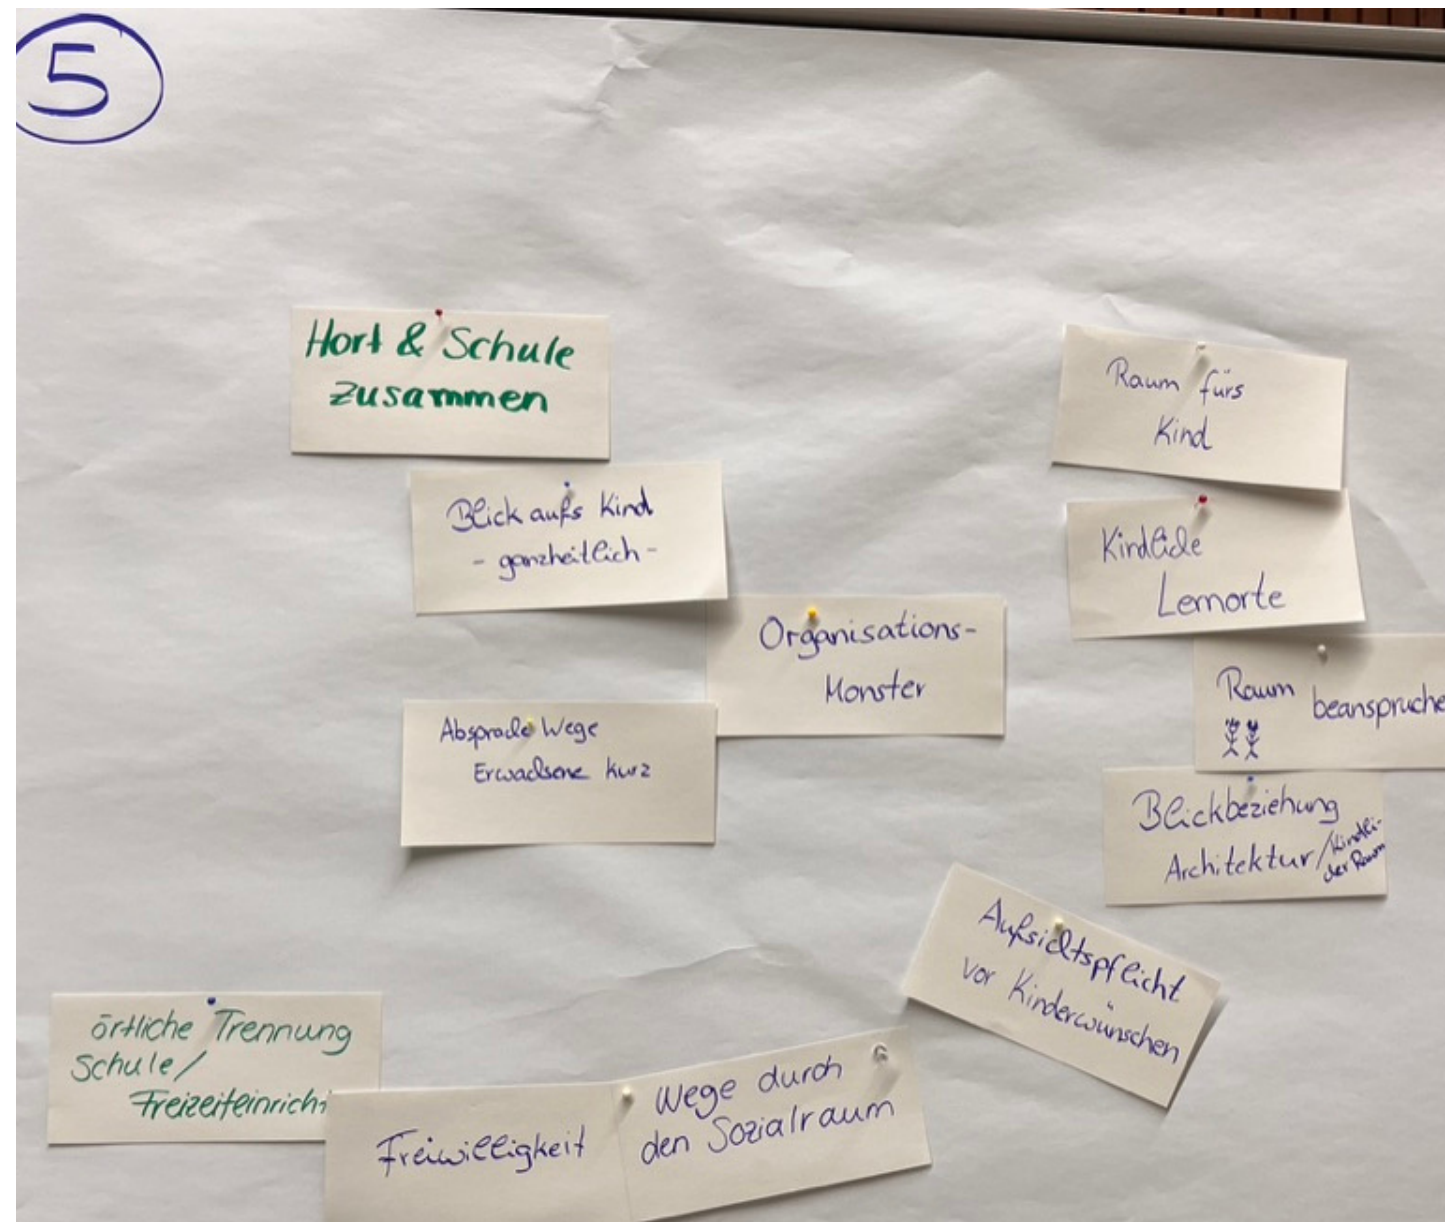 5
Hort & Schule
zusammen
Blick aufs Kind
- ganzheitlich -
Organisations-
Monster
Absprache Wege
Erwachsene kurz
Raum fürs
Kind
Kindliche
Lernorte
Raum beanspruche
Blickbeziehung
Architektur/kindli-
cher Raum
Aufsichtspflicht
vor Kinderwünschen
örtliche Trennung
Schule/
Freizeiteinricht
Freiwilligkeit
Wege durch
den Sozialraum